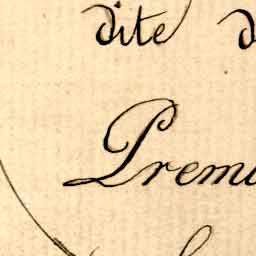 dite d
Prem